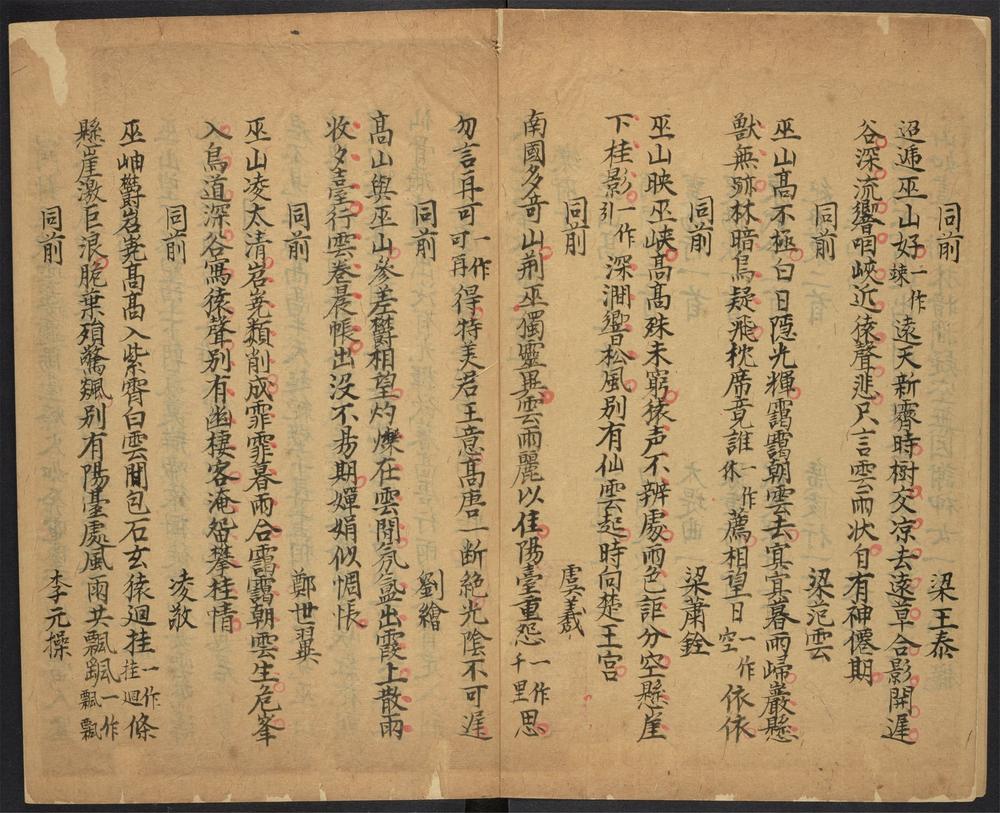 同前　梁王泰
迢遞巫山好一作竦遠天新霽時樹交凉去遠草合影開遲
谷深流響咽峽近猿聲悲只言雲雨状自有神僊期
同前　梁范雲
巫山高不極白日隱光輝靄靄朝雲去㝠㝠暮雨歸巖懸
獸無跡林暗鳥疑飛枕席竟誰一作休薦相望日一作空依依
同前　梁蕭銓
巫山映巫峽高高殊未窮猿声不辨處雨色詎分空懸崖
下桂影一作引深澗響松風别有仙雲起時向楚王宮
同前　虞羲
南國多奇山荆巫獨靈異雲雨麗以佳陽臺重怨一作千里思
勿言再可一作可再得特美君王意高唐一断絶光陰不可遅
同前　劉繪
高山與巫山參差欝相望灼爍在雲間氛氲出霞上散雨
收夕臺行雲卷晨帳出没不易期嬋娟似惆悵
同前　鄭世翼
巫山凌太清岧嶤類削成霏霏暮雨合靄靄朝雲生危峯
入鳥道深谷寫猿聲别有幽棲客淹留攀桂情
同前　凌敬
巫岫欝岧嶤高高入紫霄白雲間包石玄猿迴挂一作挂迴條
懸崖激巨浪脆葉殞驚飆别有陽臺處風雨共飄飖一作飄飄
同前　李元操